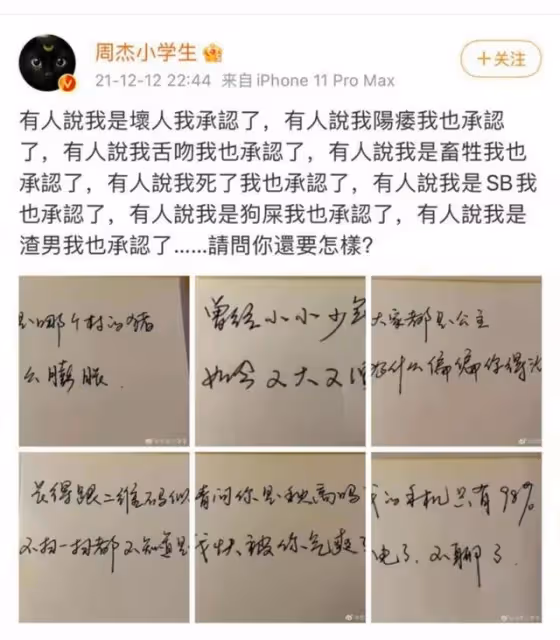 周杰小学生
21-12-12 22:44 来自 iPhone 11 Pro Max
+关注
有人說我是壞人我承認了，有人說我陽痿我也承認
了，有人說我舌吻我也承認了，有人說我是畜牲我也
承認了，有人說我死了我也承認了，有人說我是SB我
也承認了，有人說我是狗屎我也承認了，有人說我是
渣男我也承認了......請問你還要怎樣?
是哪个村的猪
么膨胀.
曾经小小少年
如今又大又
大家都是公主
为什么偏偏你得
长得跟二维码似
不扫一扫都不知道是
请问你是秋高吗
我快被你气爽了
我的手机只有98%
电了.不聊了.